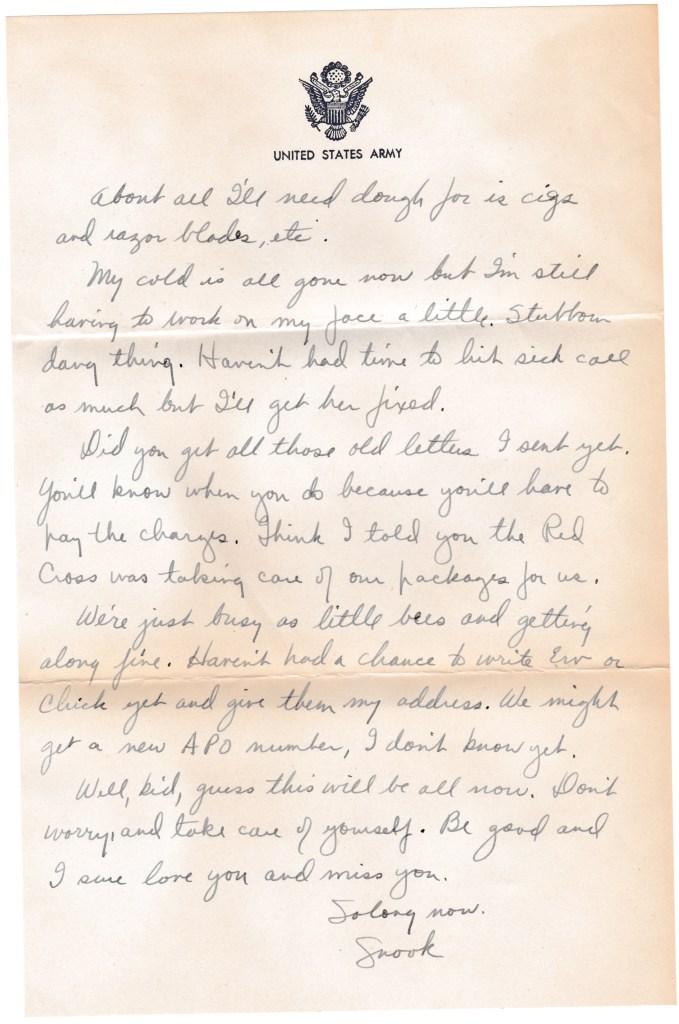 UNITED STATES ARMY
About all I'll need dough for is cigs
and razor blades, etc.
My cold is all gone now but I'm still
having to work on my face a little. Stubborn
dang thing. Haven't had time to hit sick call
as much but I'll get her fixed.
Did you get all those old letters I sent yet.
You'll know when you do because you'll have to
pay the charges. Think I told you the Red
Cross was taking care of our packages for us.
We're just busy as little bees and getting
along fine. Haven't had a chance to write Erv or
Chick yet and give them my address. We might
get a new APO number, I don't know yet.
Well, kid, guess this will be all now. Don't
worry, and take care of yourself. Be good and
I sure love you and miss you.
Solong now.
Snook